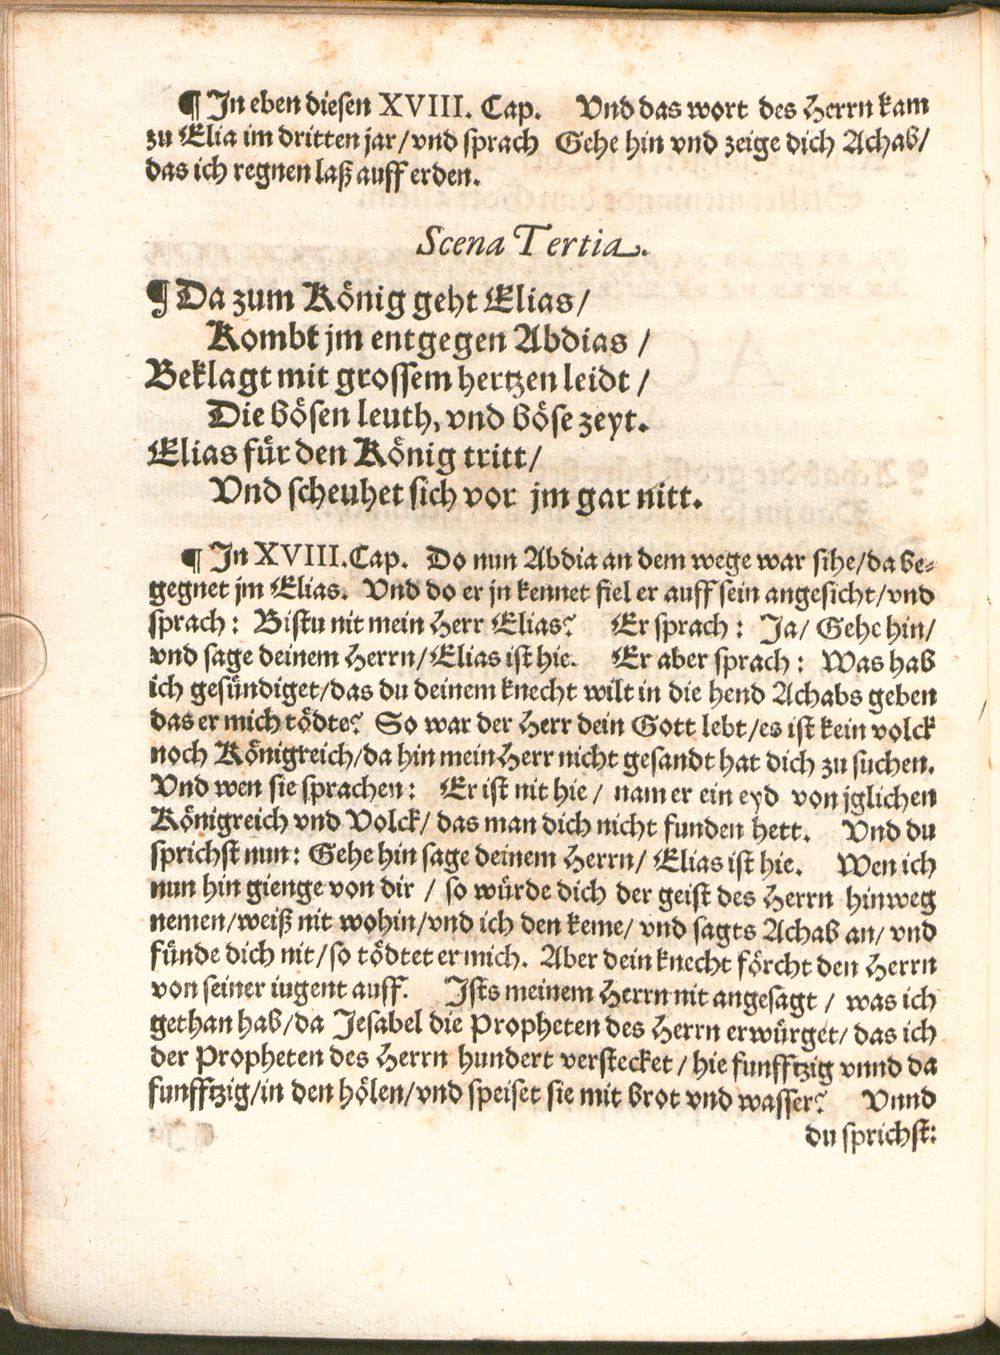 ¶ In eben diesen XVIII. Cap. Vnd das wort des Herrn kam
zu Elia im dritten jar/vnd sprach Gehe hin vnd zeige dich Achab/
das ich regnen laß auff erden.
Scena Tertia.
¶ Da zum König geht Elias/
Kombt jm entgegen Abdias /
Beklagt mit grossem hertzen leidt /
Die bösen leuth, vnd böse zeyt.
Elias für den König tritt/
Vnd scheuhet sich vor jm gar nitt.
¶ In XVIII. Cap. Do nun Abdia an dem wege war sihe/da be-
gegnet jm Elias. Vnd do er jn kennet fiel er auff sein angesicht/vnd
sprach: Bistu nit mein Herr Elias? Er sprach: Ja/ Gehe hin/
vnd sage deinem Herrn/Elias ist hie. Er aber sprach: Was hab
ich gesündiget/das du deinem knecht wilt in die hend Achabs geben
das er mich tödte? So war der Herr dein Gott lebt/es ist kein volck
noch Königreich/da hin mein Herr nicht gesandt hat dich zu suchen.
Vnd wen sie sprachen: Er ist nit hie/ nam er ein eyd von jglichen
Königreich vnd Volck/ das man dich nicht funden hett. Vnd du
sprichst nun: Gehe hin sage deinem Herrn/ Elias ist hie. Wen ich
nun hin gienge von dir / so würde dich der geist des Herrn hinweg
nemen/weiß nit wohin/vnd ich den keme/ vnd sagts Achab an/ vnd
fünde dich nit/so tödtet er mich. Aber dein knecht förcht den Herrn
von seiner iugent auff. Ists meinem Herrn nit angesagt / was ich
gethan hab/da Jesabel die Propheten des Herrn erwürget/ das ich
der Propheten des Herrn hundert verstecket/ hie funfftzig vnnd da
funfftzig/in den hölen/vnd speiset sie mit brot vnd wasser? Vnnd
du sprichst: